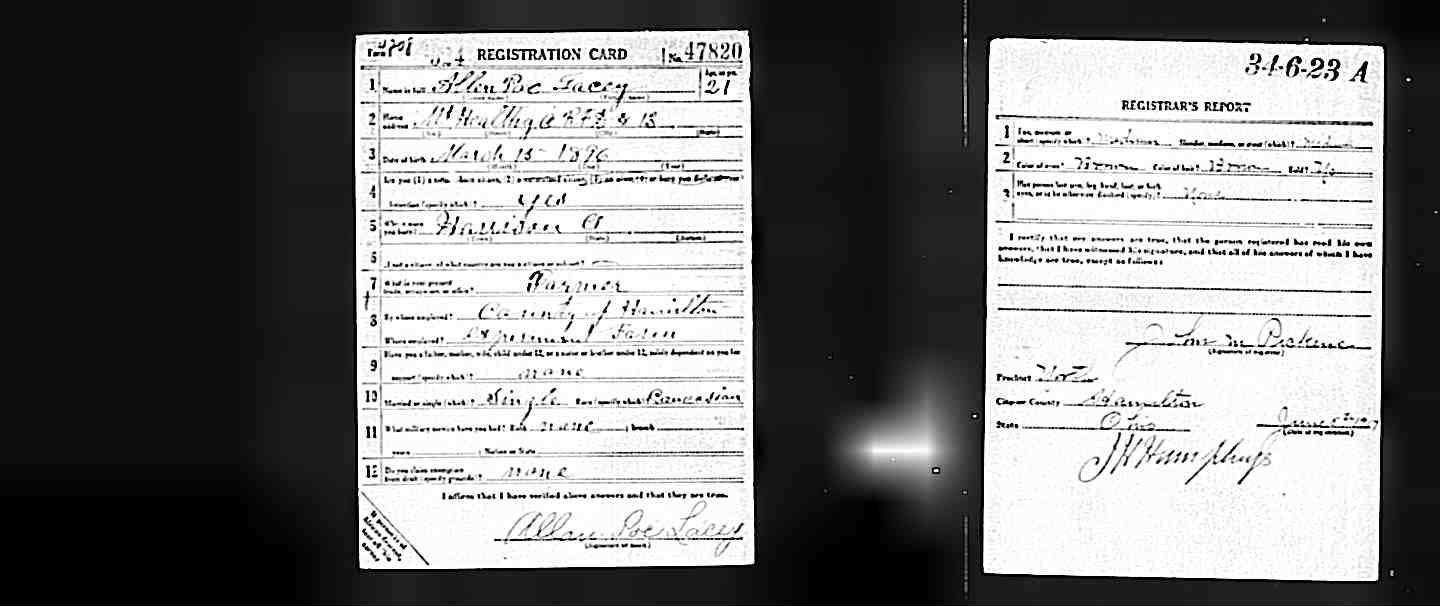 REGISTRATION CARD No. 47820
1 Name in full Allen Poe Lacey Age in yrs. 21
2 Home address Mt Healthy O RFD
3 Date of birth March 15 1896
4 Are you (1) a natural-born citizen, (2) a naturalized citizen, (3) an alien, (4) or have you declared your
intention (specify which)? yes
5 Where were you born? Harrison O
6 If not a citizen, of what country are you a citizen or subject?
7 What is your present trade, occupation, or office? Farmer
8 By whom employed? County of Hamilton
Where employed? Experiment Farm
9 Have you a father, mother, wife, child under 12, or a sister or brother under 12, solely dependent on you for
support (specify which)? none
10 Married or single (which)? Single Race (specify which)? Caucasian
11 What military service have you had? Rank none ; branch
years ; Nation or State
12 Do you claim exemption from draft (specify grounds)? none
I affirm that I have verified above answers and that they are true.
Allan Poe Lacey
(Signature or mark)
34-6-23 A
REGISTRAR'S REPORT
1 Tall, medium, or short (specify which)? Medium Slender, medium, or stout (which)? Medium
2 Color of eyes? Brown Color of hair? Brown Bald? No
3 Has person lost arm, leg, hand, foot, or both eyes, or is he otherwise disabled (specify)? None
I certify that my answers are true, that the person registered has read his own
answers, that I have witnessed his signature, and that all of his answers of which I have
knowledge are true, except as follows:
(Signature of registrar)
Precinct
City or County Hamilton
State Ohio June 5th 1917
(Date of registration)
J H Humphreys